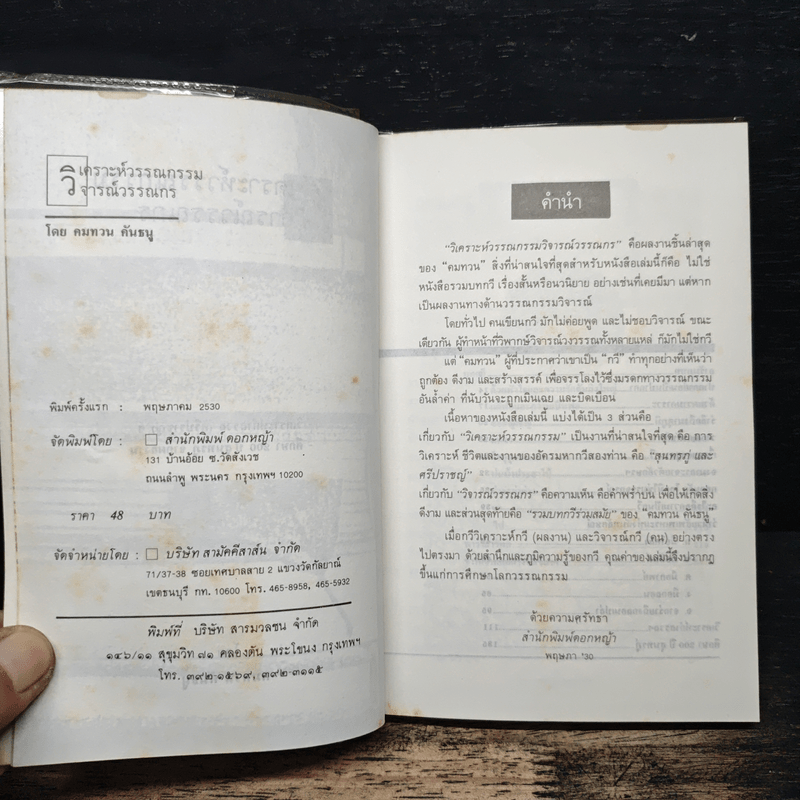 วิเคราะห์วรรณกรรม
วิจารณ์วรรณกร
โดย คมทวน คันธนู
พิมพ์ครั้งแรก : พฤษภาคม 2530
จัดพิมพ์โดย : สำนักพิมพ์ ดอกหญ้า
131 บ้านอ้อย ซ.วัดสังเวช
ถนนลำพู พระนคร กรุงเทพฯ 10200
ราคา 48 บาท
จัดจำหน่ายโดย : บริษัท สามัคคีสาส์น จำกัด
71/37-38 ซอยเทศบาลสาย 2 แขวงวัดกัลยาณ์
เขตธนบุรี กท. 10600 โทร. 465-8958, 465-5932
พิมพ์ที่ บริษัท สารมวลชน จำกัด
๑๔๖/๑๑ สุขุมวิท ๗๑ คลองตัน พระโขนง กรุงเทพฯ
โทร. ๓๙๒-๑๕๖๙, ๓๙๒-๓๑๑๕
คำนำ
"วิเคราะห์วรรณกรรมวิจารณ์วรรณกร" คือผลงานชิ้นล่าสุด
ของ "คมทวน" สิ่งที่น่าสนใจที่สุดสำหรับหนังสือเล่มนี้ก็คือ ไม่ใช่
หนังสือรวมบทกวี เรื่องสั้นหรือนวนิยาย อย่างเช่นที่เคยมีมา แต่หาก
เป็นผลงานทางด้านวรรณกรรมวิจารณ์
โดยทั่วไป คนเขียนกวี มักไม่ค่อยพูด และไม่ชอบวิจารณ์ ขณะ
เดียวกัน ผู้ทำหน้าที่วิพากษ์วิจารณ์วงวรรณทั้งหลายแหล่ ก็มักไม่ใช่กวี
แต่ "คมทวน" ผู้ที่ประกาศว่าเขาเป็น "กวี" ทำทุกอย่างที่เห็นว่า
ถูกต้อง ดีงาม และสร้างสรรค์ เพื่อจรรโลงไว้ซึ่งมรดกทางวรรณกรรม
อันล้ำค่า ที่นับวันจะถูกเมินเฉย และบิดเบือน
เนื้อหาของหนังสือเล่มนี้ แบ่งได้เป็น 3 ส่วนคือ
เกี่ยวกับ "วิเคราะห์วรรณกรรม" เป็นงานที่น่าสนใจที่สุด คือ การ
วิเคราะห์ ชีวิตและงานของอัครมหากวีสองท่าน คือ "สุนทรภู่ และ
ศรีปราชญ์"
เกี่ยวกับ "วิจารณ์วรรณกร" คือความเห็น คือคำพร่ำบ่น เพื่อให้เกิดสิ่ง
ดีงาม และส่วนสุดท้ายคือ "รวมบทกวีร่วมสมัย" ของ "คมทวน คันธนู"
เมื่อกวีวิเคราะห์กวี (ผลงาน) และวิจารณ์กวี (คน) อย่างตรง
ไปตรงมา ด้วยสำนึกและภูมิความรู้ของกวี คุณค่าของเล่มนี้จึงปรากฏ
ขึ้นแก่การศึกษาโลกวรรณกรรม
ด้วยความศรัทธา
สำนักพิมพ์ดอกหญ้า
พฤษภา '30